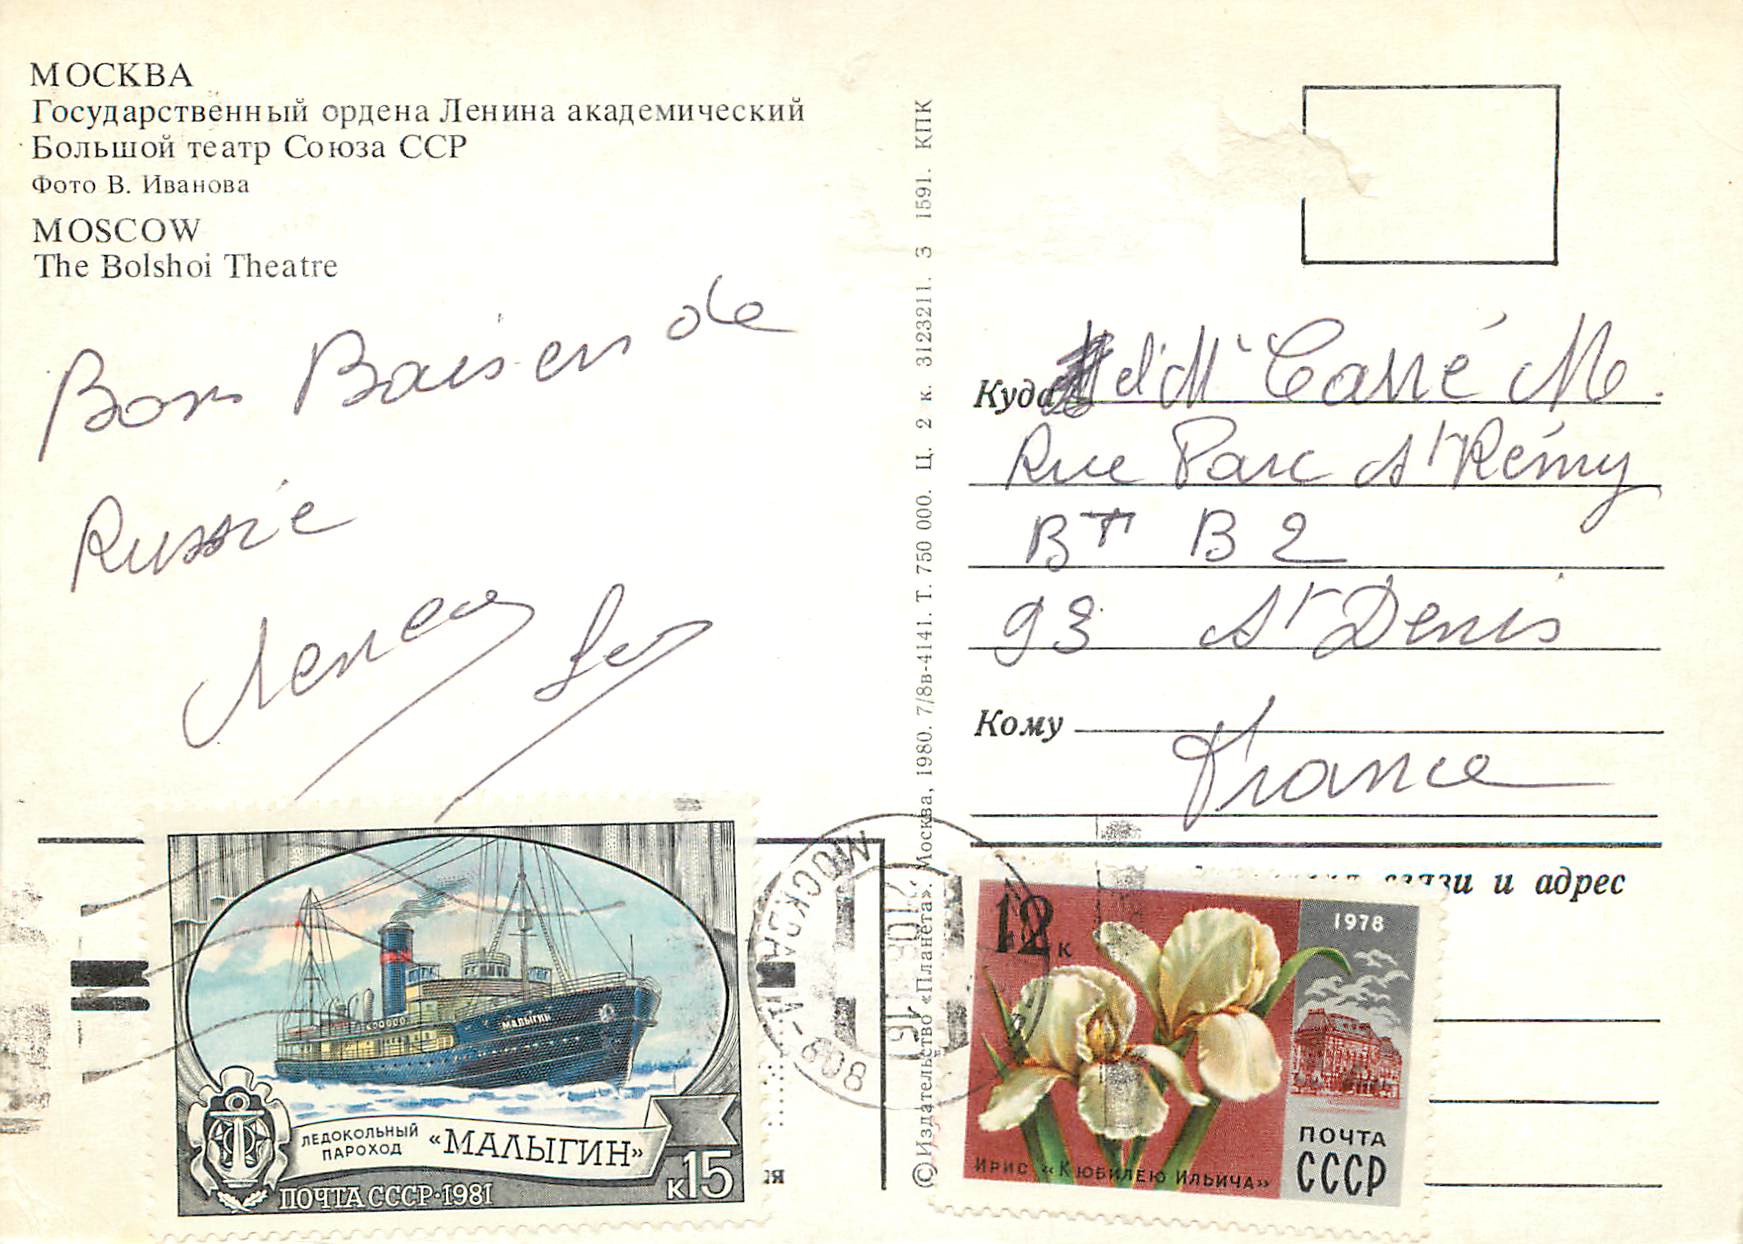 МОСКВА
Государственный ордена Ленина академический
Большой театр Союза ССР
Фото В. Иванова
MOSCOW
The Bolshoi Theatre
Bons Baisers de
Russie
©Издательство «Планета». Москва, 1980. 7/8в-4141. Т. 750 000. Ц. 2 к. 3123211. З 1591. КПК
Куда M Carré M.
Rue Parc St Rémy
BT B 2
93 St Denis
Кому
France
связи и адрес
МОСКВА
808
МАЛЫГИН
ЛЕДОКОЛЬНЫЙ
ПАРОХОД «МАЛЫГИН»
ПОЧТА СССР·1981
к15
12 к
1978
ПОЧТА
СССР
ИРИС «К ЮБИЛЕЮ ИЛЬИЧА»